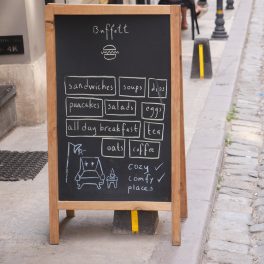 Buffett
sandwiches soups dips
pancakes salads eggs
all day breakfast tea
oats coffee
cozy ✓
comfy ✓
places